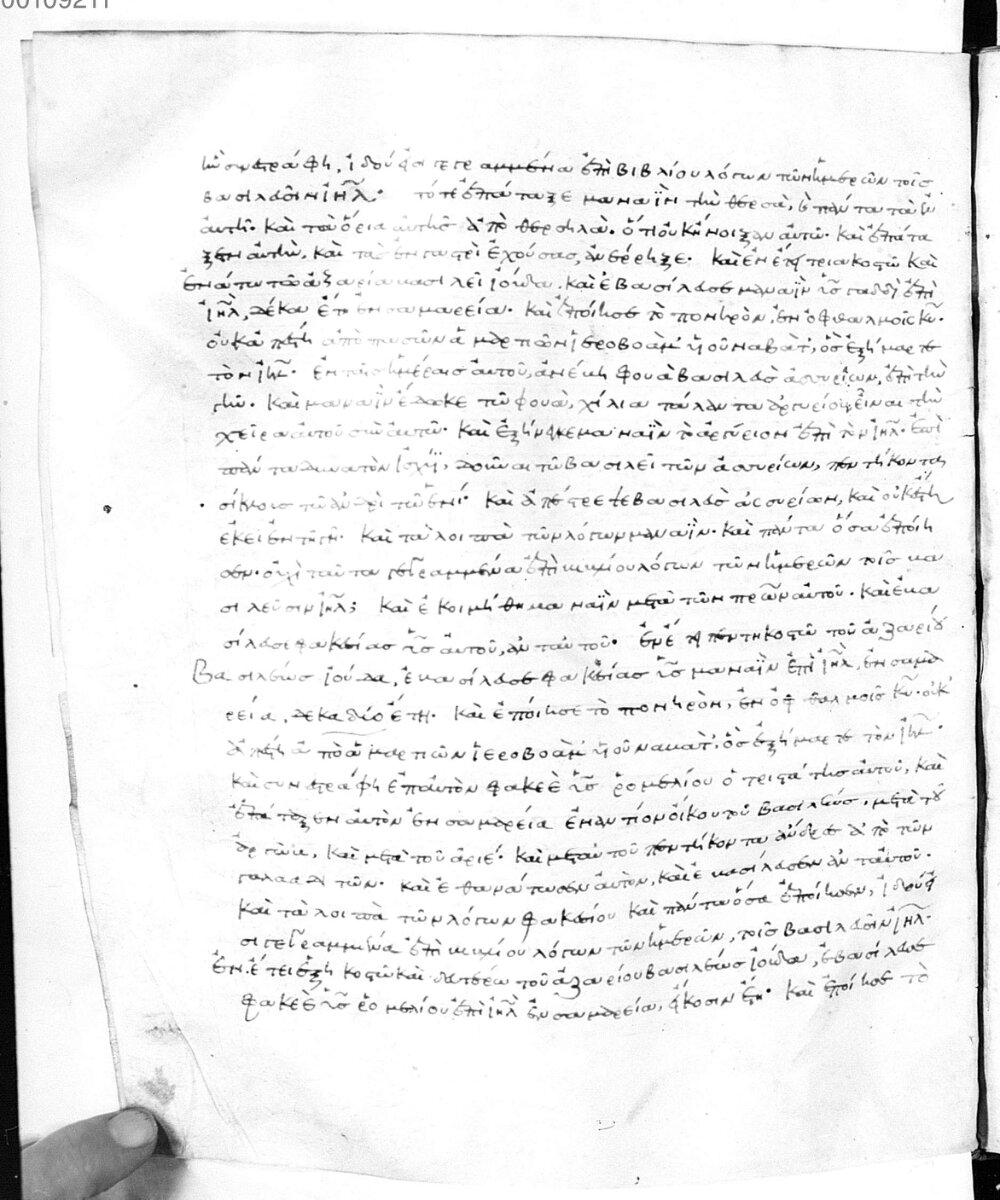 00109211
ἣν συνεστράφη, ἰδού εἰσι γεγραμμένα ἐπὶ βιβλίου λόγων τῶν ἡμερῶν τοῖς
βασιλεῦσιν ἰηλ. τότε ἐπάταξε μαναὴν τὴν θερσὰ, καὶ πάντα τὰ ἐν
αὐτῇ. καὶ τὰ ὅρια αὐτῆς ἀπὸ θερσιλά. ὅτι οὐκ ἤνοιξαν αὐτῶ. καὶ ἐπάτα
ξεν αὐτὴν, καὶ τὰς ἐν γαστρὶ ἐχούσας ἀνέρρηξε. καὶ ἐν ἔτει τριακοστῶ καὶ
ἐνάτω τοῦ ἀζαρία βασιλεῖ ἰούδα, καὶ ἐβασίλευσε μαναὴν υἱὸς γαδδὶ ἐπὶ
ἰηλ, δέκα ἔτη ἐν σαμαρεία. καὶ ἐποίησε τὸ πονηρὸν, ἐν ὀφθαλμοῖς κυ.
οὐκ ἀπέστη ἀπὸ πασῶν ἁμαρτιῶν ἱεροβοὰμ υἱοῦ ναβὰτ, ὃς ἐξήμαρτε
τὸν ἰηλ. ἐν ταῖς ἡμέραις αὐτοῦ, ἀνέβη φουὰ βασιλεὺς ἀσσυρίων, ἐπὶ τὴν
γῆν. καὶ μαναὴν ἔδωκε τῶ φουὰ, χίλια τάλαντα ἀργυρίου, εἶναι τὴν
χεῖρα αὐτοῦ σὺν αὐτῶ. καὶ ἐξήνεγκε μαναὴν τὸ ἀργύριον ἐπὶ τὸν ἰηλ. ἐπὶ
πάντα δυνατὸν ἰσχύϊ, δοῦναι τῶ βασιλεῖ τῶν ἀσσυρίων, πεντήκοντα
σίκλους τῶ ἀνδρὶ τῶ ἑνί. καὶ ἀπέστρεψε βασιλεὺς ἀσσυρίων, καὶ οὐκ ἔστη
ἐκεῖ ἐν τῇ γῇ. καὶ τὰ λοιπὰ τῶν λόγων μαναήν. καὶ πάντα ὅσα ἐποίη
σεν. οὐχὶ ταῦτα γεγραμμένα ἐπὶ βιβλίου λόγων τῶν ἡμερῶν τοῖς βα
σιλεῦσιν ἰηλ; καὶ ἐκοιμήθη μαναὴν μετὰ τῶν πρων αὐτοῦ. καὶ ἐβα
σίλευσε φακεΐας υἱὸς αὐτοῦ, ἀντ' αὐτοῦ. ἐν ἔτει πεντηκοστῶ τοῦ ἀζαρίου
Βασιλέως ἰούδα, ἐβασίλευσε φακεΐας υἱὸς μαναὴν ἐπὶ ἰηλ, ἐν σαμα
ρεία, δεκαδύο ἔτη. καὶ ἐποίησε τὸ πονηρὸν, ἐν ὀφθαλμοῖς κυ. οὐκ
ἀπέστη ἀπὸ ἁμαρτιῶν ἱεροβοὰμ υἱοῦ ναβὰτ, ὃς ἐξήμαρτε τὸν ἰηλ.
καὶ συνεστράφη ἐπ' αὐτὸν φακεὲ υἱὸς ῥομελίου ὁ τριστάτης αὐτοῦ, καὶ
ἐπάταξεν αὐτὸν ἐν σαμαρεία ἐναντίον οἴκου τοῦ βασιλέως, μετὰ τοῦ
ἀργὼβ, καὶ μετὰ τοῦ ἀριέ. καὶ μετ' αὐτοῦ πεντήκοντα ἄνδρες ἀπὸ τῶν
γαλααδιτῶν. καὶ ἐθανάτωσεν αὐτὸν, καὶ ἐβασίλευσεν ἀντ' αὐτοῦ.
καὶ τὰ λοιπὰ τῶν λόγων φακεσίου καὶ πάντα ὅσα ἐποίησεν, ἰδού εἰ
σι γεγραμμένα ἐπὶ βιβλίου λόγων τῶν ἡμερῶν, τοῖς βασιλεῦσιν ἰηλ.
ἐν ἔτει ἑξηκοστῶ καὶ δευτέρω τοῦ ἀζαρίου βασιλέως ἰούδα, ἐβασίλευσε
φακεὲ υἱὸς ῥομελίου ἐπὶ ἰηλ ἐν σαμαρεία, εἴκοσιν ἔτη. καὶ ἐποίησε τὸ